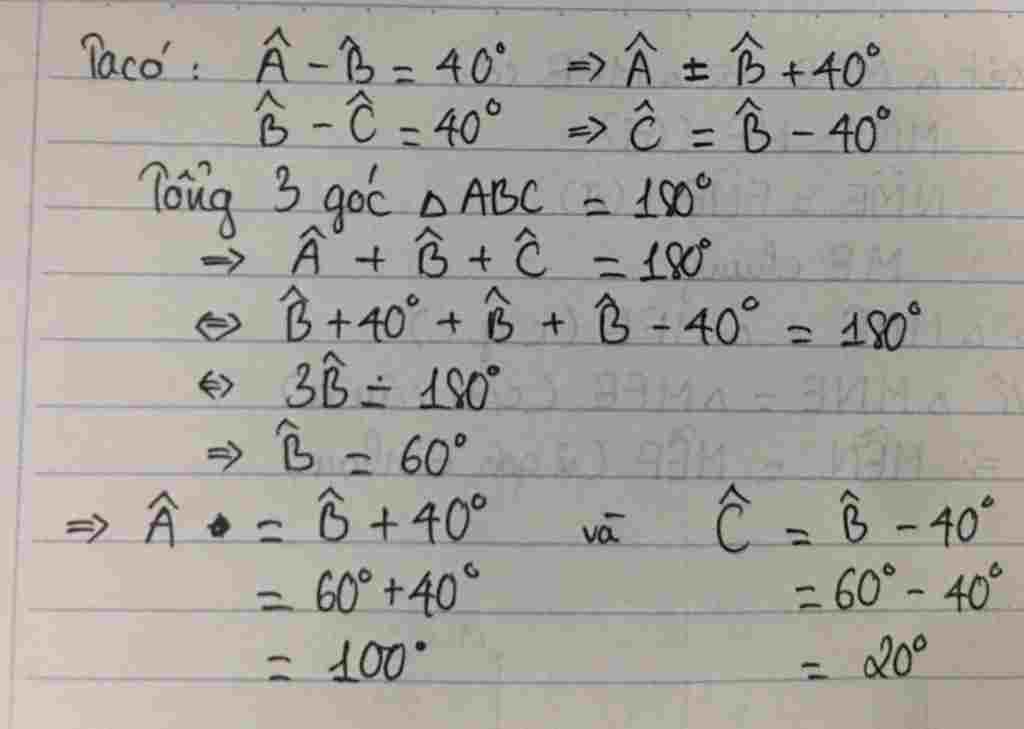 Ta có : Â - B̂ = 40° => Â = B̂ + 40°
B̂ - Ĉ = 40° => Ĉ = B̂ - 40°
Tổng 3 góc △ ABC = 180°
=> Â + B̂ + Ĉ = 180°
<=> B̂ + 40° + B̂ + B̂ - 40° = 180°
<=> 3B̂ = 180°
=> B̂ = 60°
=> Â = B̂ + 40° và Ĉ = B̂ - 40°
= 60° + 40° = 60° - 40°
= 100° = 20°